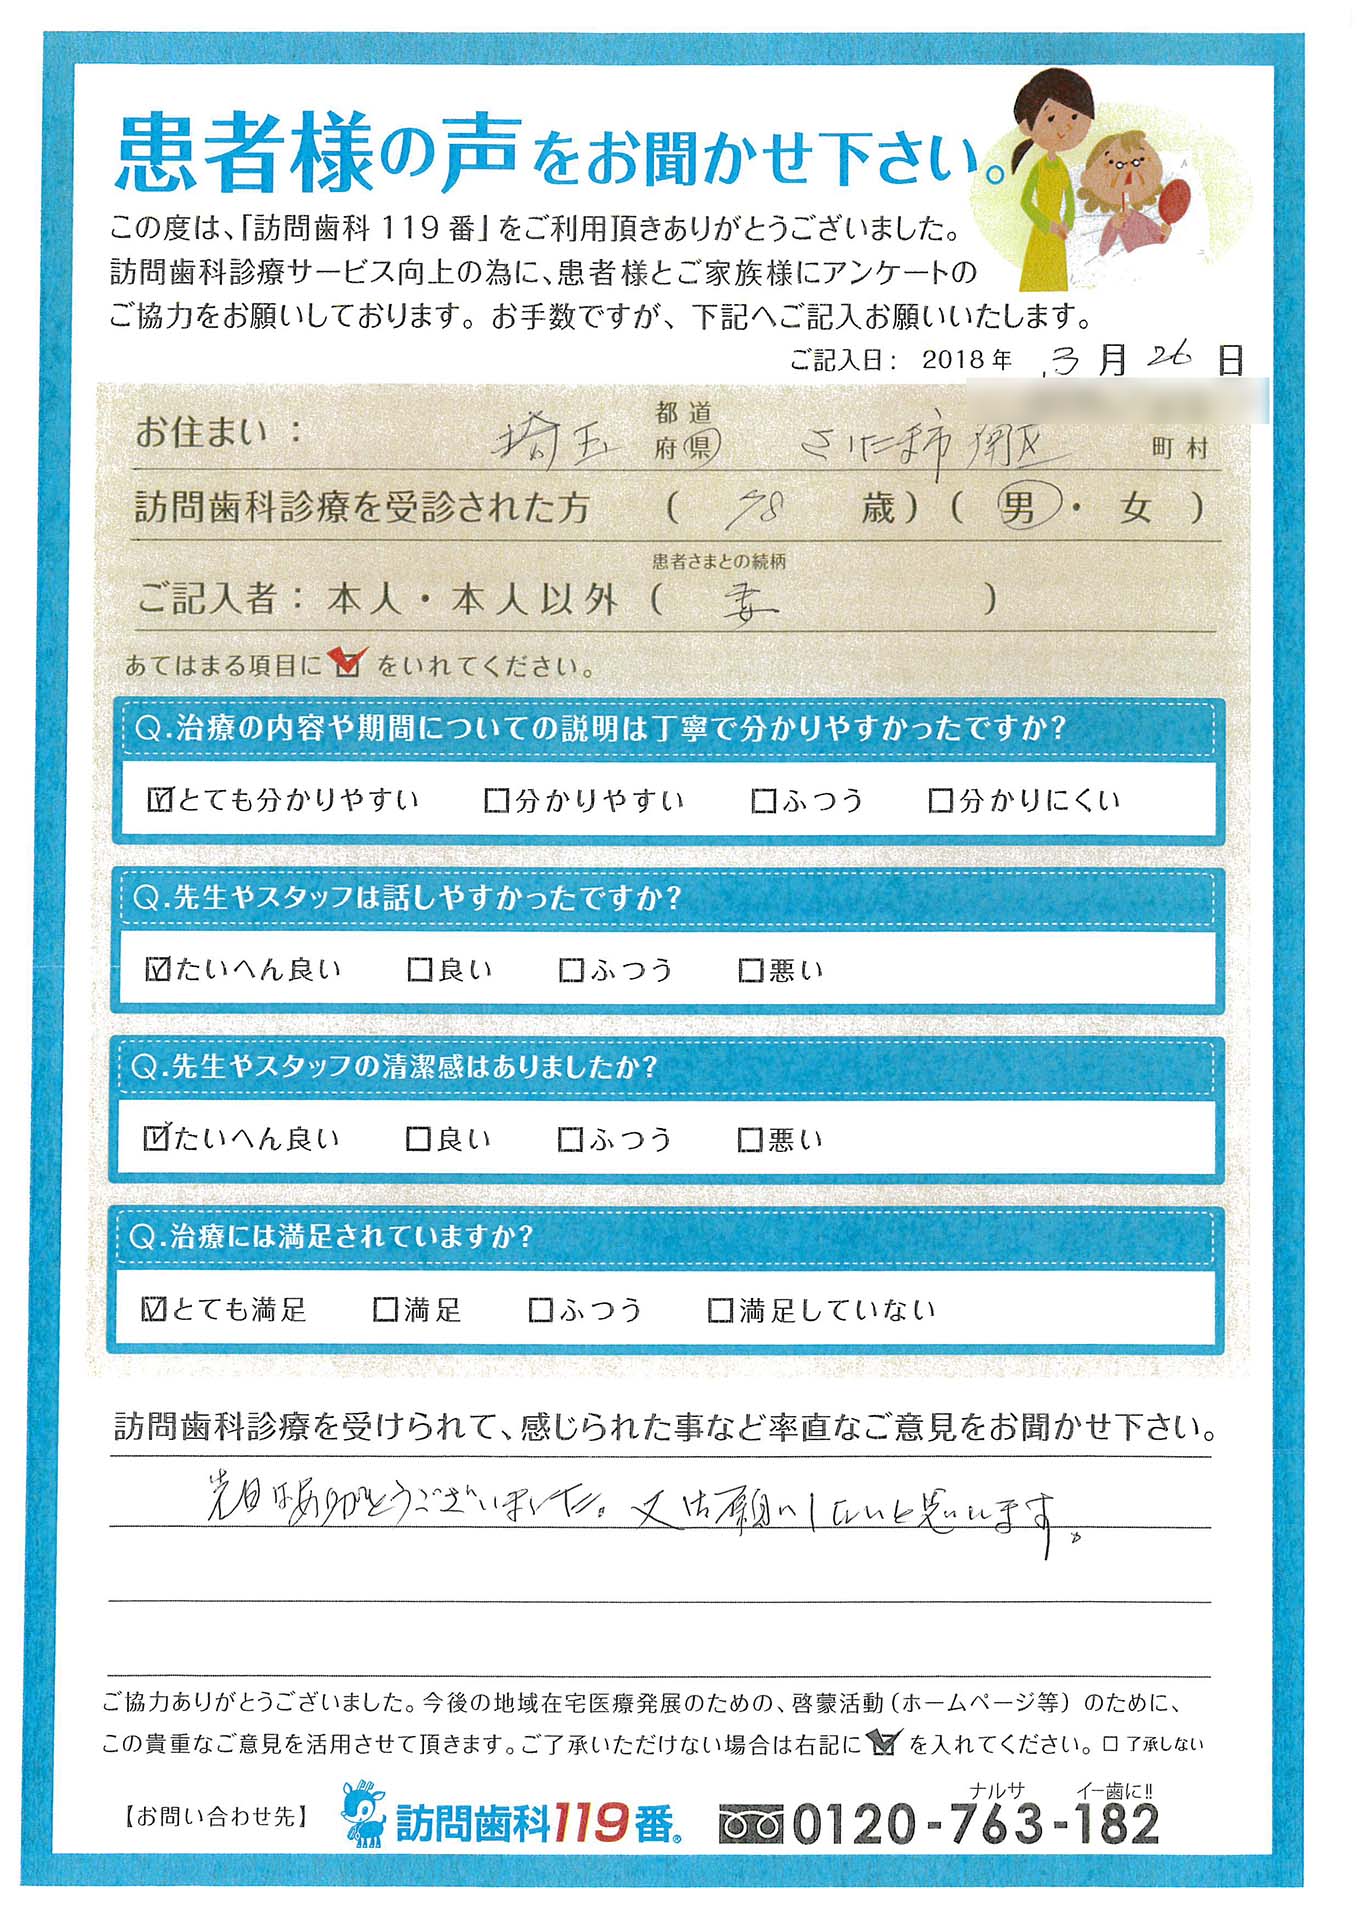 患者様の声をお聞かせ下さい。
この度は、「訪問歯科119番」をご利用頂きありがとうございました。
訪問歯科診療サービス向上の為に、患者様とご家族様にアンケートの
ご協力をお願いしております。お手数ですが、下記へご記入お願いいたします。
ご記入日： 2018年 3月26日
お住まい： 埼玉 都道府県 さいたま市 区 町村
訪問歯科診療を受診された方 （ 78 歳）（ 男・女 ）
患者さまとの続柄
ご記入者：本人・本人以外（ 妻 ）
あてはまる項目に☑をいれてください。
Q.治療の内容や期間についての説明は丁寧で分かりやすかったですか?
☑とても分かりやすい □分かりやすい □ふつう □分かりにくい
Q.先生やスタッフは話しやすかったですか?
☑たいへん良い □良い □ふつう □悪い
Q.先生やスタッフの清潔感はありましたか?
☑たいへん良い □良い □ふつう □悪い
Q.治療には満足されていますか?
☑とても満足 □満足 □ふつう □満足していない
訪問歯科診療を受けられて、感じられた事など率直なご意見をお聞かせ下さい。
先日はありがとうございました。又お願いしたいと思います。
ご協力ありがとうございました。今後の地域在宅医療発展のための、啓蒙活動（ホームページ等）のために、
この貴重なご意見を活用させて頂きます。ご了承いただけない場合は右記に☑を入れてください。□了承しない
ナルサ イー歯に!!
【お問い合わせ先】 訪問歯科119番® 0120-763-182